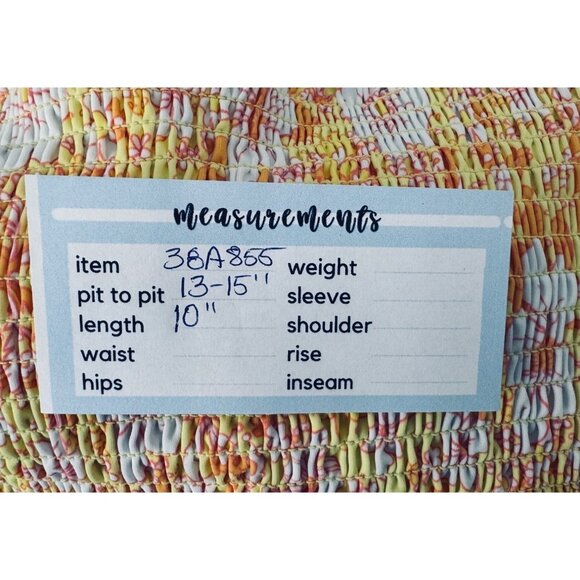 measurements
item 38A855 weight
pit to pit 13-15" sleeve
length 10" shoulder
waist rise
hips inseam